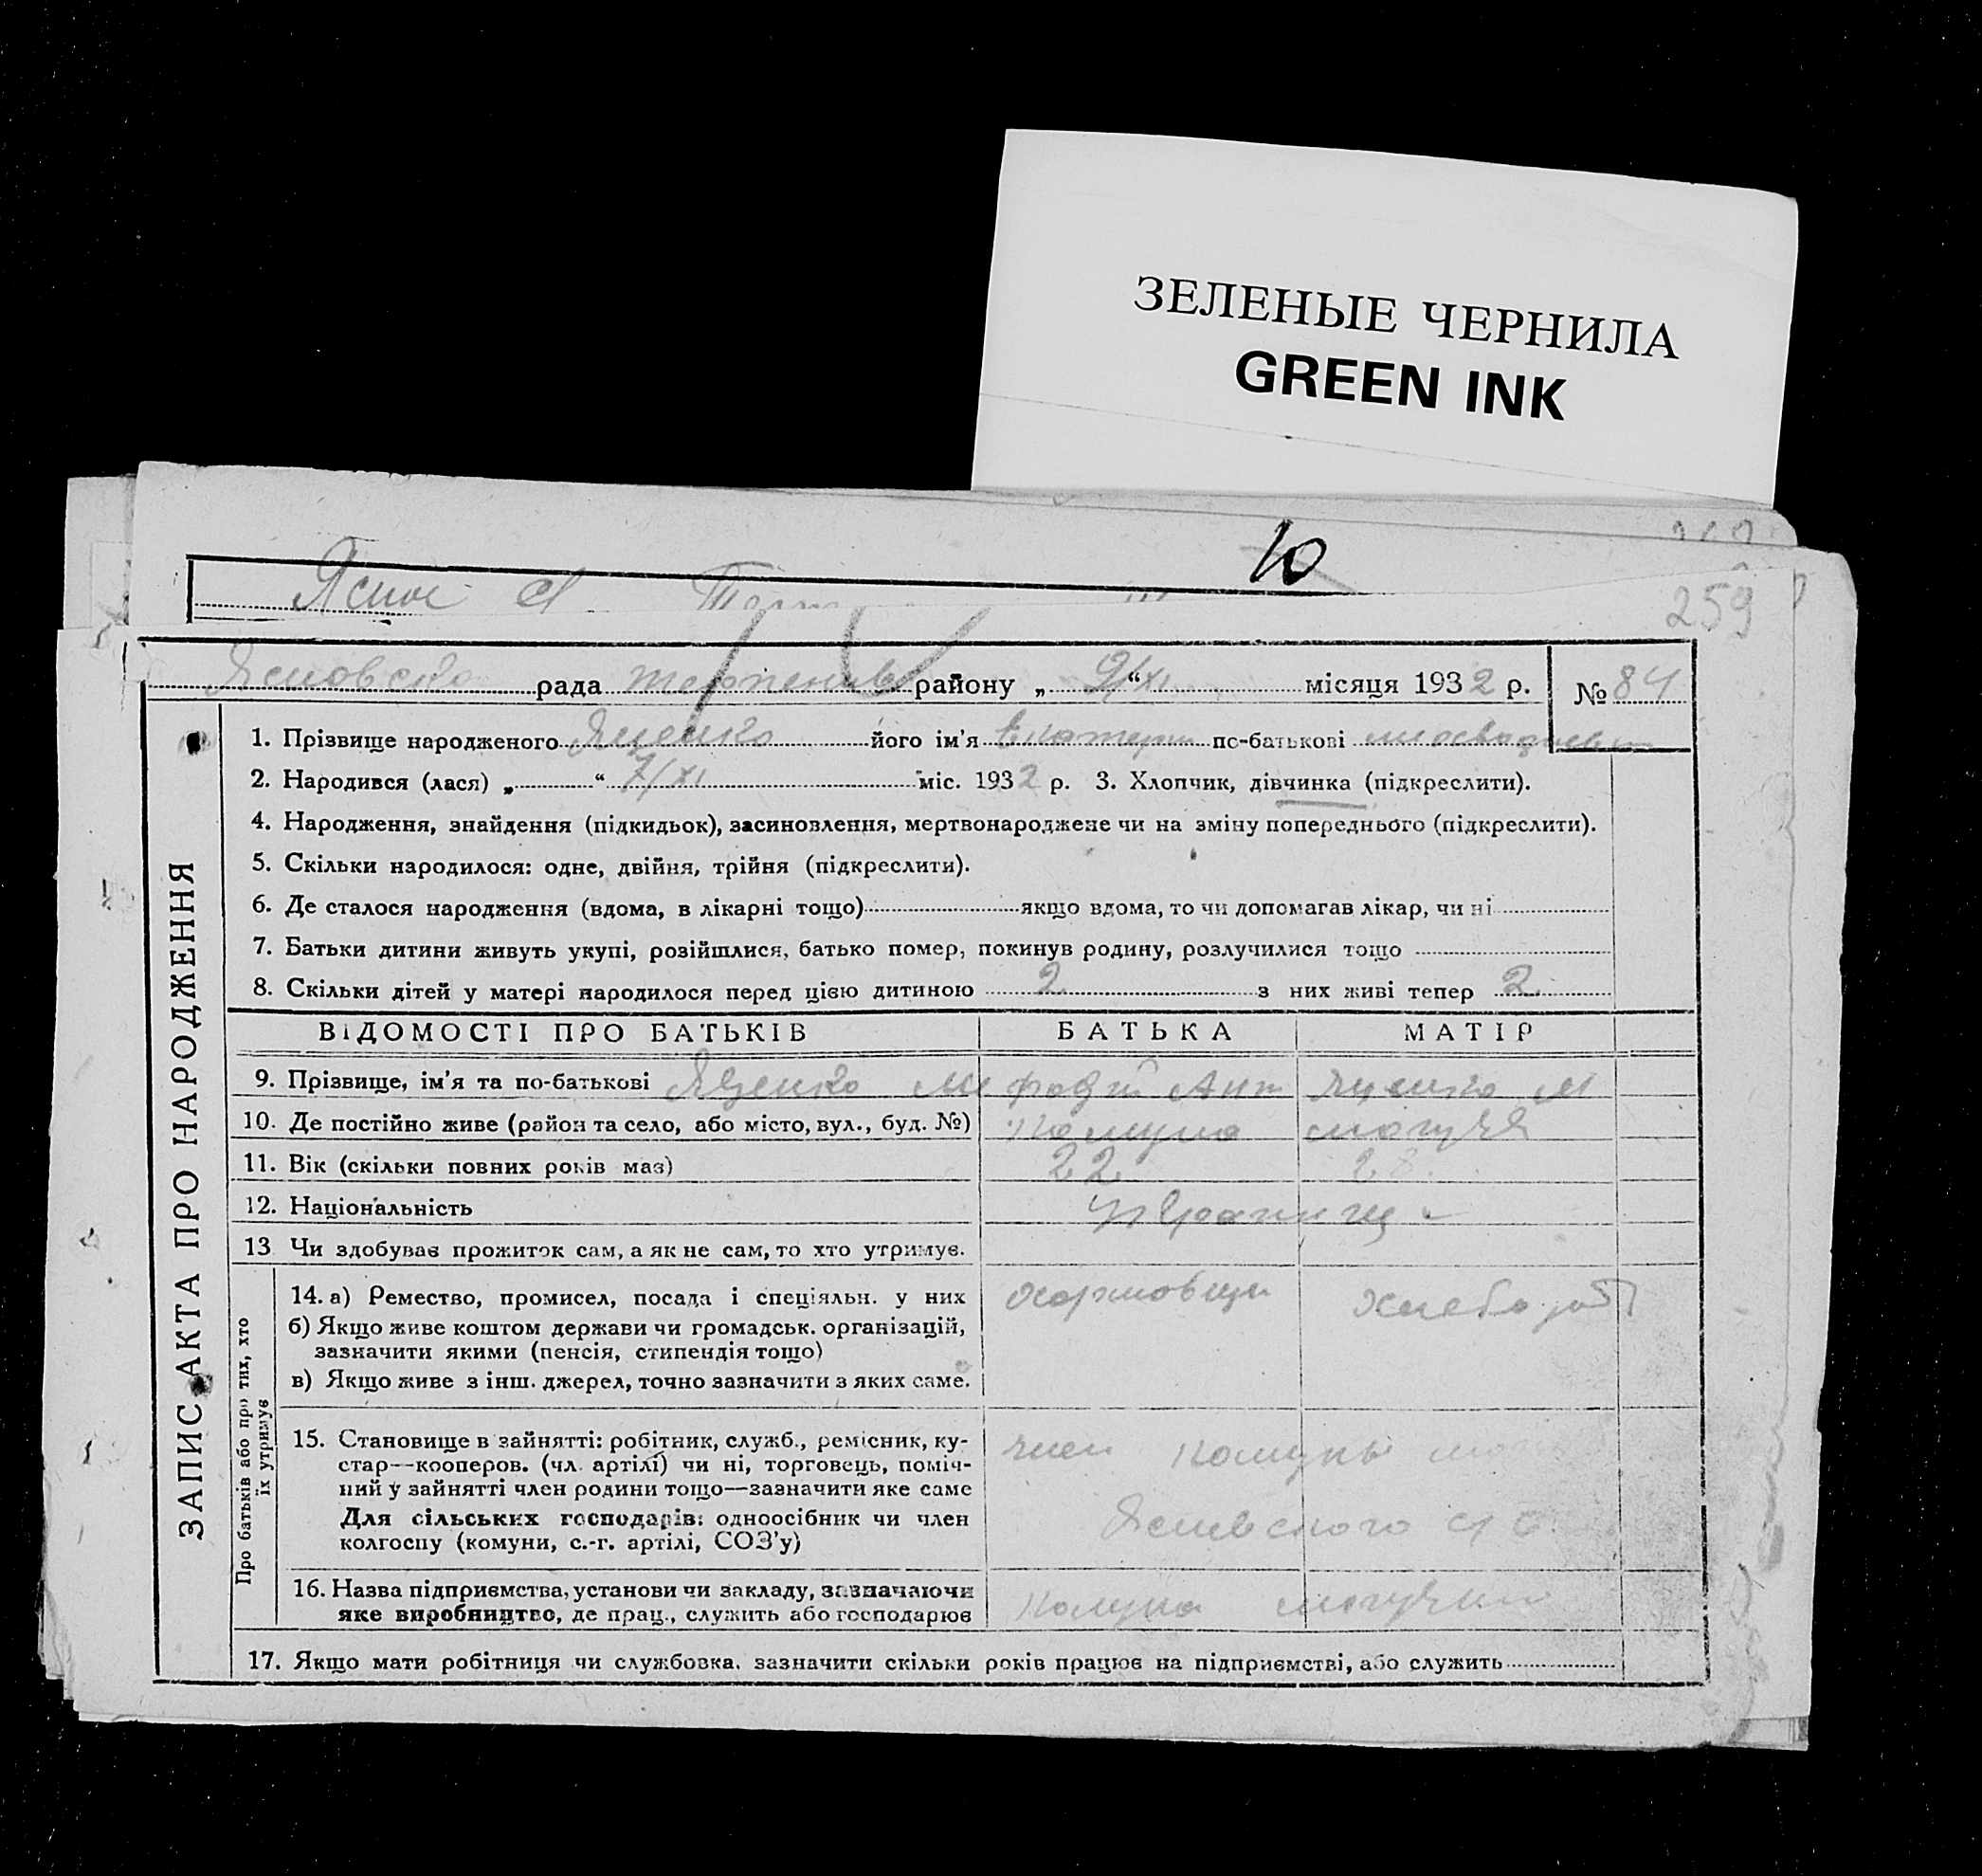 ЗЕЛЕНЫЕ ЧЕРНИЛА
GREEN INK
10
259
Ясное
рада району „ 9/XI “ місяця 1932 р. № 84
ЗАПИС АКТА ПРО НАРОДЖЕННЯ
1. Прізвище народженого Яценко його ім'я по-батькові
2. Народився (лася) „ “ 7/XI міс. 1932 р. 3. Хлопчик, дівчинка (підкреслити).
4. Народження, знайдення (підкидьок), засиновлення, мертвонароджене чи на зміну попереднього (підкреслити).
5. Скільки народилося: одне, двійня, трійня (підкреслити).
6. Де сталося народження (вдома, в лікарні тощо) якщо вдома, то чи допомагав лікар, чи ні
7. Батьки дитини живуть укупі, розійшлися, батько помер, покинув родину, розлучилися тощо
8. Скільки дітей у матері народилося перед цією дитиною 2 з них живі тепер 2
ВІДОМОСТІ ПРО БАТЬКІВ БАТЬКА МАТІР
9. Прізвище, ім'я та по-батькові Яценко Мифодий Ант Яценко М
10. Де постійно живе (район та село, або місто, вул., буд. №) Комуна
11. Вік (скільки повних років має) 22 28
12. Національність
13 Чи здобуває прожиток сам, а як не сам, то хто утримує.
Про батьків або про тих, хто
їх утримує
14. а) Ремество, промисел, посада і спеціяльн. у них
б) Якщо живе коштом держави чи громадськ. організацій,
зазначити якими (пенсія, стипендія тощо)
в) Якщо живе з інш. джерел, точно зазначити з яких саме.
15. Становище в зайнятті: робітник, служб., ремісник, ку-
стар—кооперов. (чл. артілі) чи ні, торговець, поміч-
ний у зайнятті член родини тощо—зазначити яке саме
член комуны
Для сільських господарів: одноосібник чи член
колгоспу (комуни, с.-г. артілі, СОЗ'у)
16. Назва підприємства, установи чи закладу, зазначаючи
яке виробництво, де прац., служить або господарює
Комуна
17. Якщо мати робітниця чи службовка, зазначити скільки років працює на підприємстві, або служить